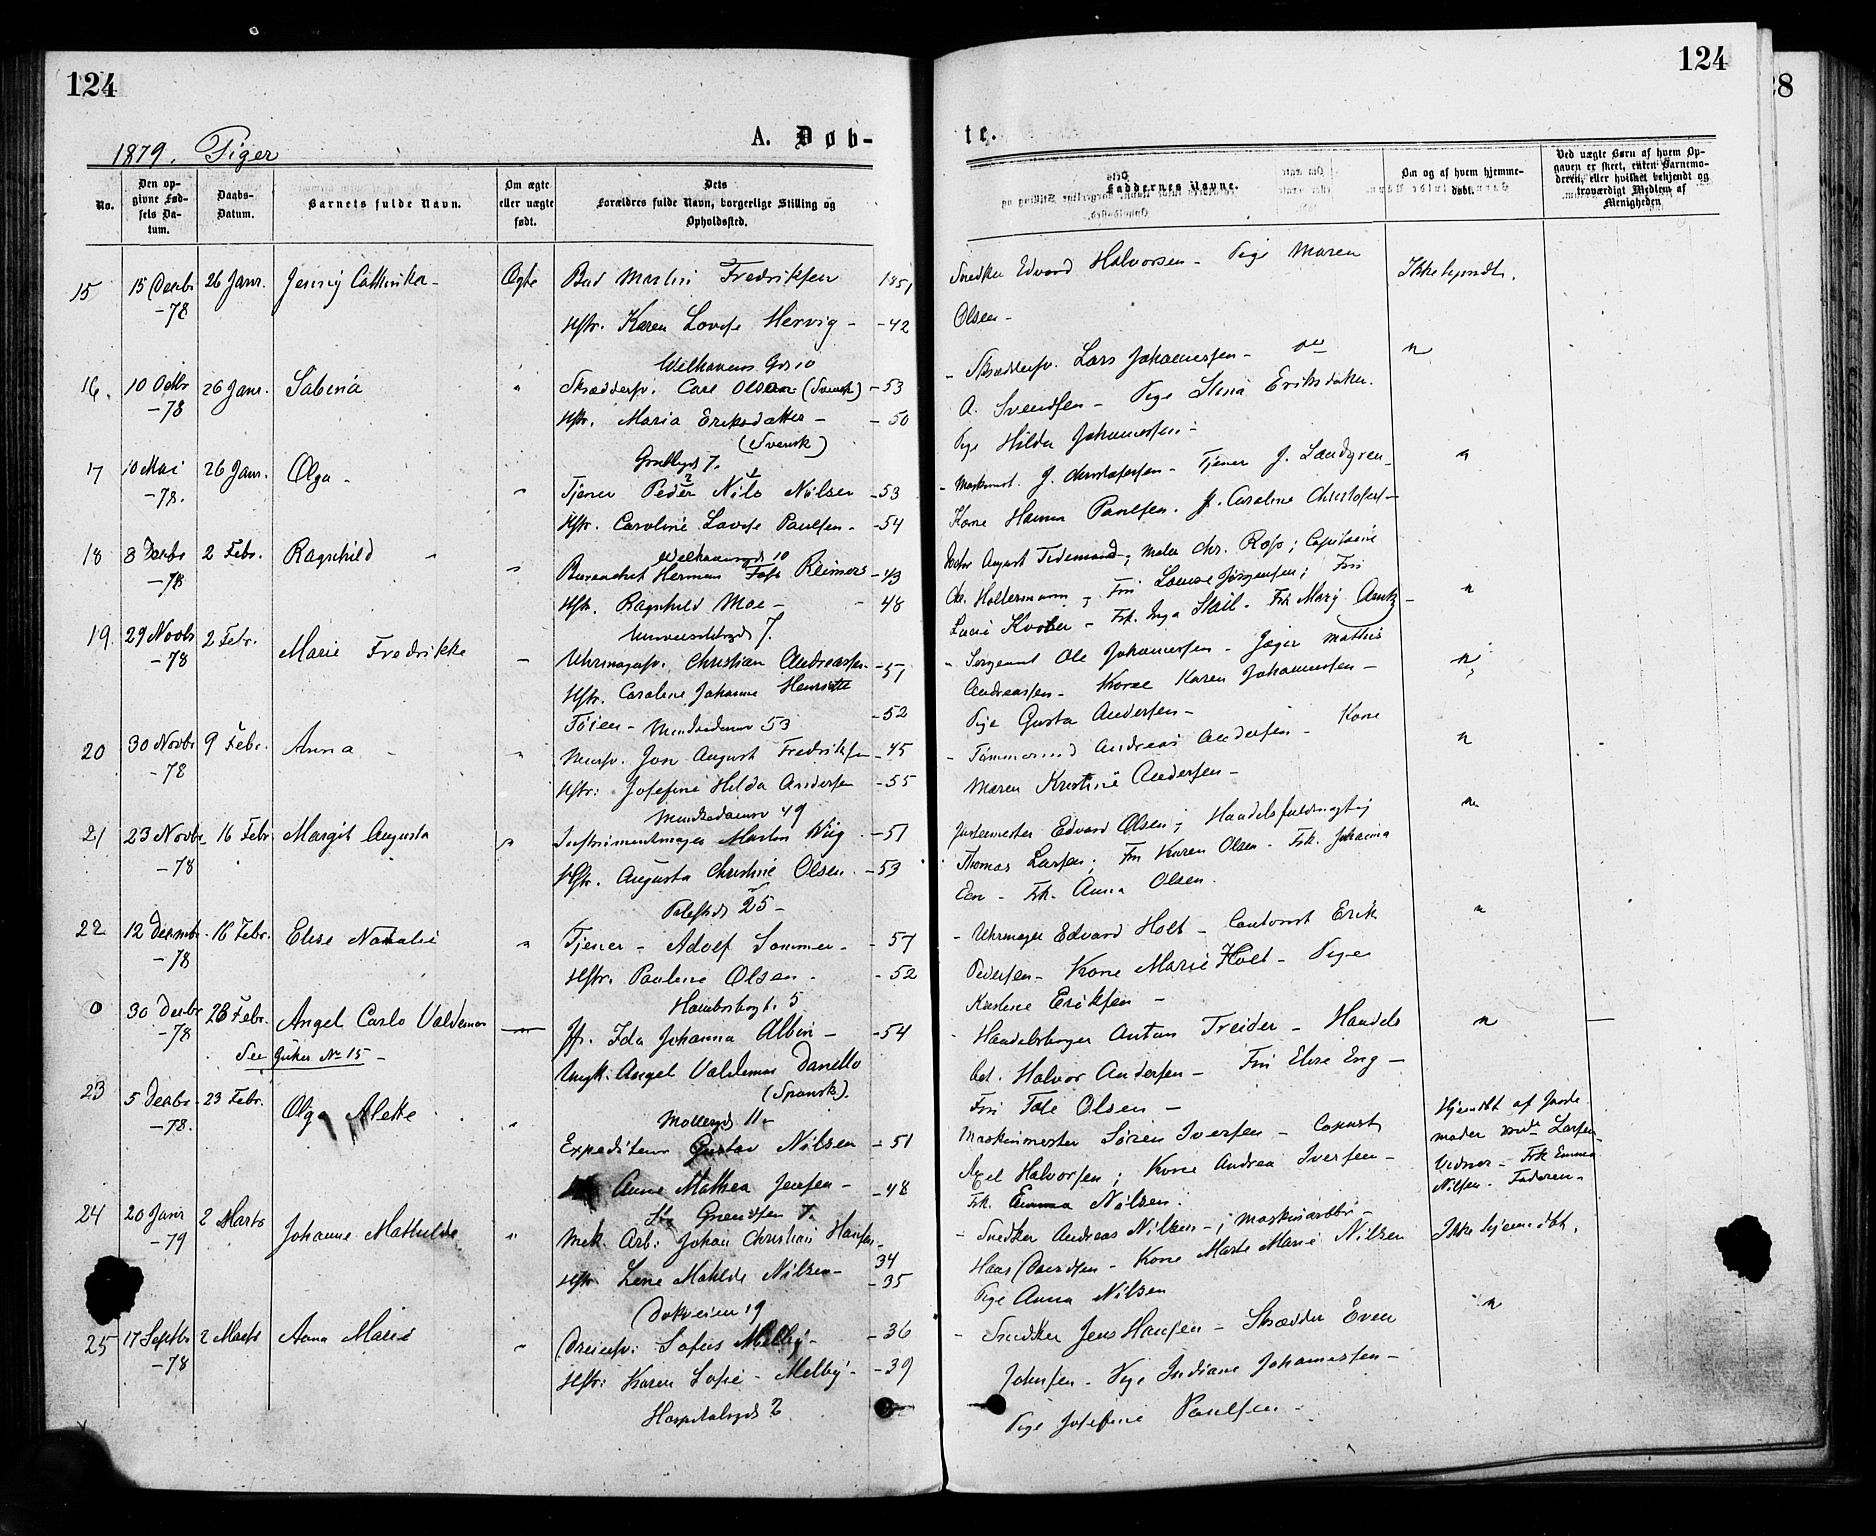 124
124
28
1879. Piger
A. Døb-
te.
No.
Den op-
givne Fød-
sels Da-
tum.
Daabs-
Datum.
Barnets fulde Navn.
Om ægte
eller uægte
født.
Dets
Forældres fulde Navn, borgerlige Stilling og
Opholdssted.
Faddernes Navne.
Om og af hvem hjemme-
døbt.
Ved uægte Børn af hvem Op-
gaven er skeet, enten Barnemo-
deren, eller hvilket bekjendt og
troværdigt Medlem af
Menigheden
15
15 Decbr
-78
26 Janr.
Jenny Cathinka -
Ægte
Martin Fredriksen
1851
Hstr. Karen Lovise Hervig -
-42
Welhavens Gd 10
Snedker Edvard Halvorsen - Pige Maren
Olsen -
Ikke hjemdt.
16.
10 Octbr
-78
26 Janr.
Sabina
"
Skræddersv. Carl Olson (Svensk)
-53
Hstr. Maria Eriksdatter -
-50
(Svensk)
Grubbegd 7.
- Skræddersv. Lars Johannessen -
A. Svendsen - Pige Stina Eriksdatter.
Pige Hilda Johannessen -
"
17
10 Mai
-78.
26 Janr.
Olga -
"
Tjener Peder Nils Nilsen
-53
Hstr. Caroline Lovise Paulsen -
-54
Welhavensgd 10
- Maskinist. J. Christofersen - Tjener J. Landgren -
Kone Hanna Paulsen. Caroline Christofers-
"
18
8 Decbr
-78
2 Febr.
Ragnhild
"
Herman Foss Reimers
-43
Hstr. Ragnhild Moe -
-48
Universitetsgd 7.
August Tidemand; Maler Chr. Ross; Capitaine
Chr. Holtermann; Fru Louise Jørgensen; Fru
Frk. Inga Frk Mary
"
19.
29 Novbr
-78
2 Febr.
Marie Fredrikke
"
Uhrmagersv. Christian Andreassen
-51
Hstr. Caroline Johanne Henriette
-52
Tøien - Munkedamv 53
- Sergeant Ole Johannessen - Jæger Mathis
Andreassen - Kone Karen Johannessen -
Pige Gusta Andersen -
"
20
30 Novbr
-78
9 Febr.
Anna -
"
Mursv. Jon August Fredriksen
-45
Hstr: Josefine Hilda Andersen
-55
Munkedamv 49
- Tømmermd Andreas Andersen - Kone
Maren Kristine Andersen -
"
21
23 Novbr
-78
16 Febr
Margit Augusta
"
Instrumentmager Martin Wiig
-51
Hstr. Augusta Christine Olsen.
-53
Pilestrd 25 -
Edvard Olsen; Handelsfuldmægtig
Thomas Larsen; Fru Karen Olsen. Frk. Johanna
Frk. Anna Olsen.
"
22
12 Decmbr
-78
16 Febr.
Elise Nathalie
"
Tjener - Adolf Sommer -
-57
Hstr. Pauline Olsen.
-52
5
- Uhrmager Edvard Holt - Contorist Erik
Pedersen - Kone Marie Holt - Pige
Kristine Eriksen -
"
0
30 Decbr
-78
23 Febr.
Angel Carlo Valdemar
See Gutter No 15 -
Pf. Ida Johanna Albin -
-54
Ungk. Angel Valdemar Danello
(Spansk).
Møllergd 11 -
- Handelsborger Anton Treider - Handels
bet. Halvor Andersen - Fru Elise Eng -
Fru Olsen -
"
23
5 Decbr
-78.
23 Febr.
Olga Alette
"
Expediteur Gustav Nilsen
-51
Anne Mathea Jensen -
-48
St. Grændsen 7.
Maskinmester Søren Iversen - Copist
Axel Halvorsen; Kone Andrea Iversen -
Frk. Emma Nilsen.
Hjemdbt af Jorde
moder Larsen
Vidner - Frk Emma
Nilsen - Faderen -
24
20 Janr
-79
2 Marts
Johanne Mathilde
"
Mek. Arb: Johan Christian Hansen -
34
Hstr. Lene Matilde Nilsen -
-35
Dokveien 19
- Snedker Andreas Nilsen -; Maskinarbbr -
Hans Davidsen - Kone Marte Marie Nilsen
Pige Anna Nilsen
Ikke hjemmedbt.
25
17 Septbr
-78
2 Marts
Anna Marie
"
Dreiersv: Sofus Melby -
-36
Hstr: Karen Sofie - Melby -
-39
Hospitalsgd 2
- Snedker Jens Hansen - Skrædder Even
Johnsen - Pige Indiane Johannessen -
Pige Josefine Paulsen -
"